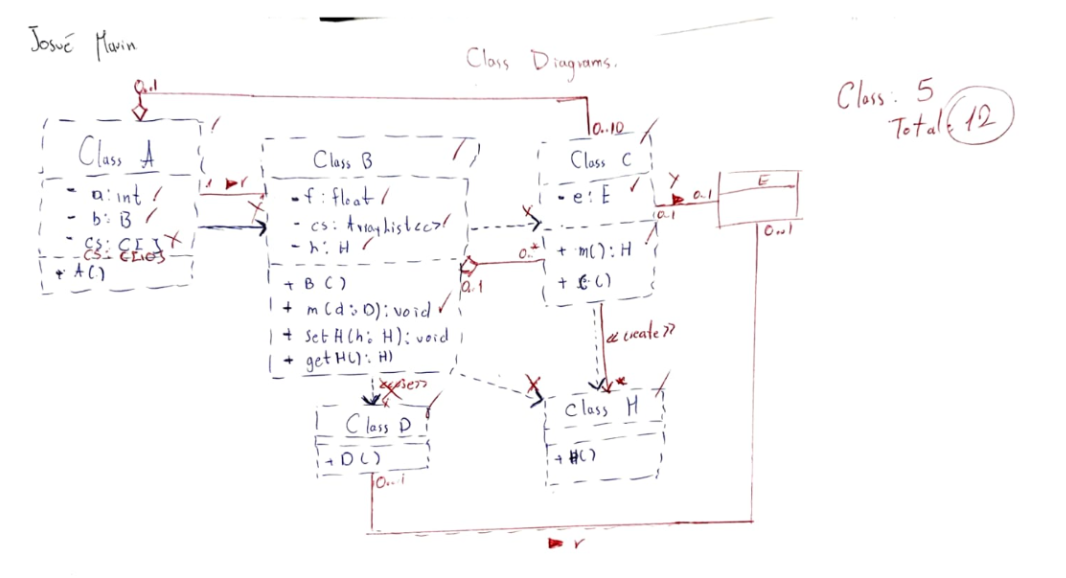 Josué Marin
Class Diagrams.
Class: 5
Total: 12
0..1
0..10
Class A
- a: int
- b: B
- cs: C[]
+ A()
1
r
Class B
- f: float
- cs: ArrayList<c>
- h: H
+ B()
+ m(d: D): void
+ setH(h: H): void
+ getH(): H)
Class C
- e: E
+ m(): H
+ C()
0..*
0..1
r
0..1
0..1
E
0..1
<<create>>
<<use>>
Class D
+ D()
0..1
Class H
+ H()
r